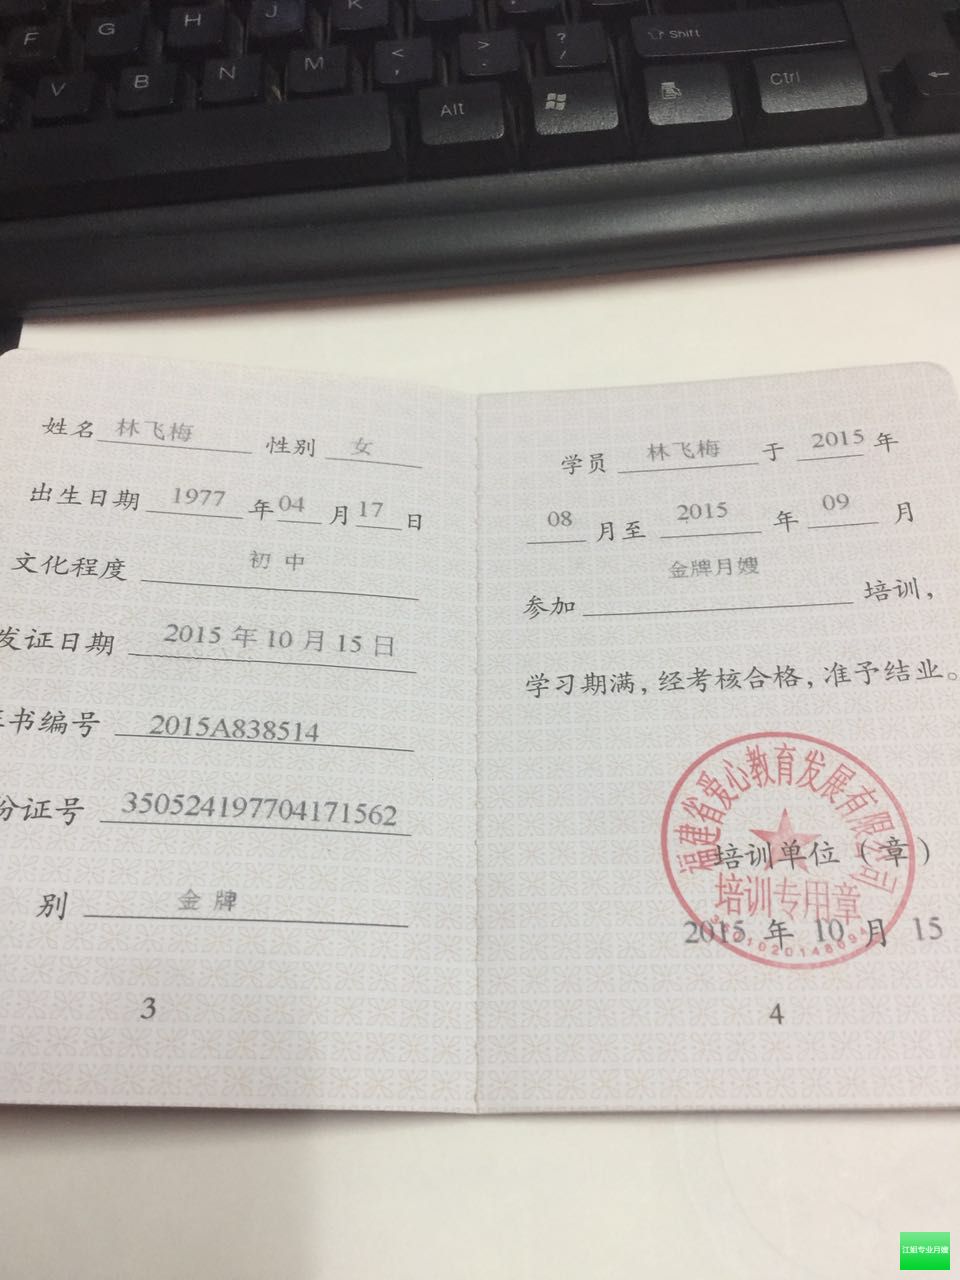 F G H J K
V B N M < , > . ? / Shift
Alt Ctrl ←
姓名 林飞梅 性别 女
出生日期 1977 年 04 月 17 日
文化程度 初中
发证日期 2015 年 10 月 15 日
书编号 2015A838514
份证号 350524197704171562
别 金牌
3
学员 林飞梅 于 2015 年
08 月至 2015 年 09 月
参加 金牌月嫂 培训,
学习期满,经考核合格,准予结业。
福建省爱心教育发展有限公司
培训单位(章)
培训专用章
2015 年 10 月 15
4
江姐专业月嫂